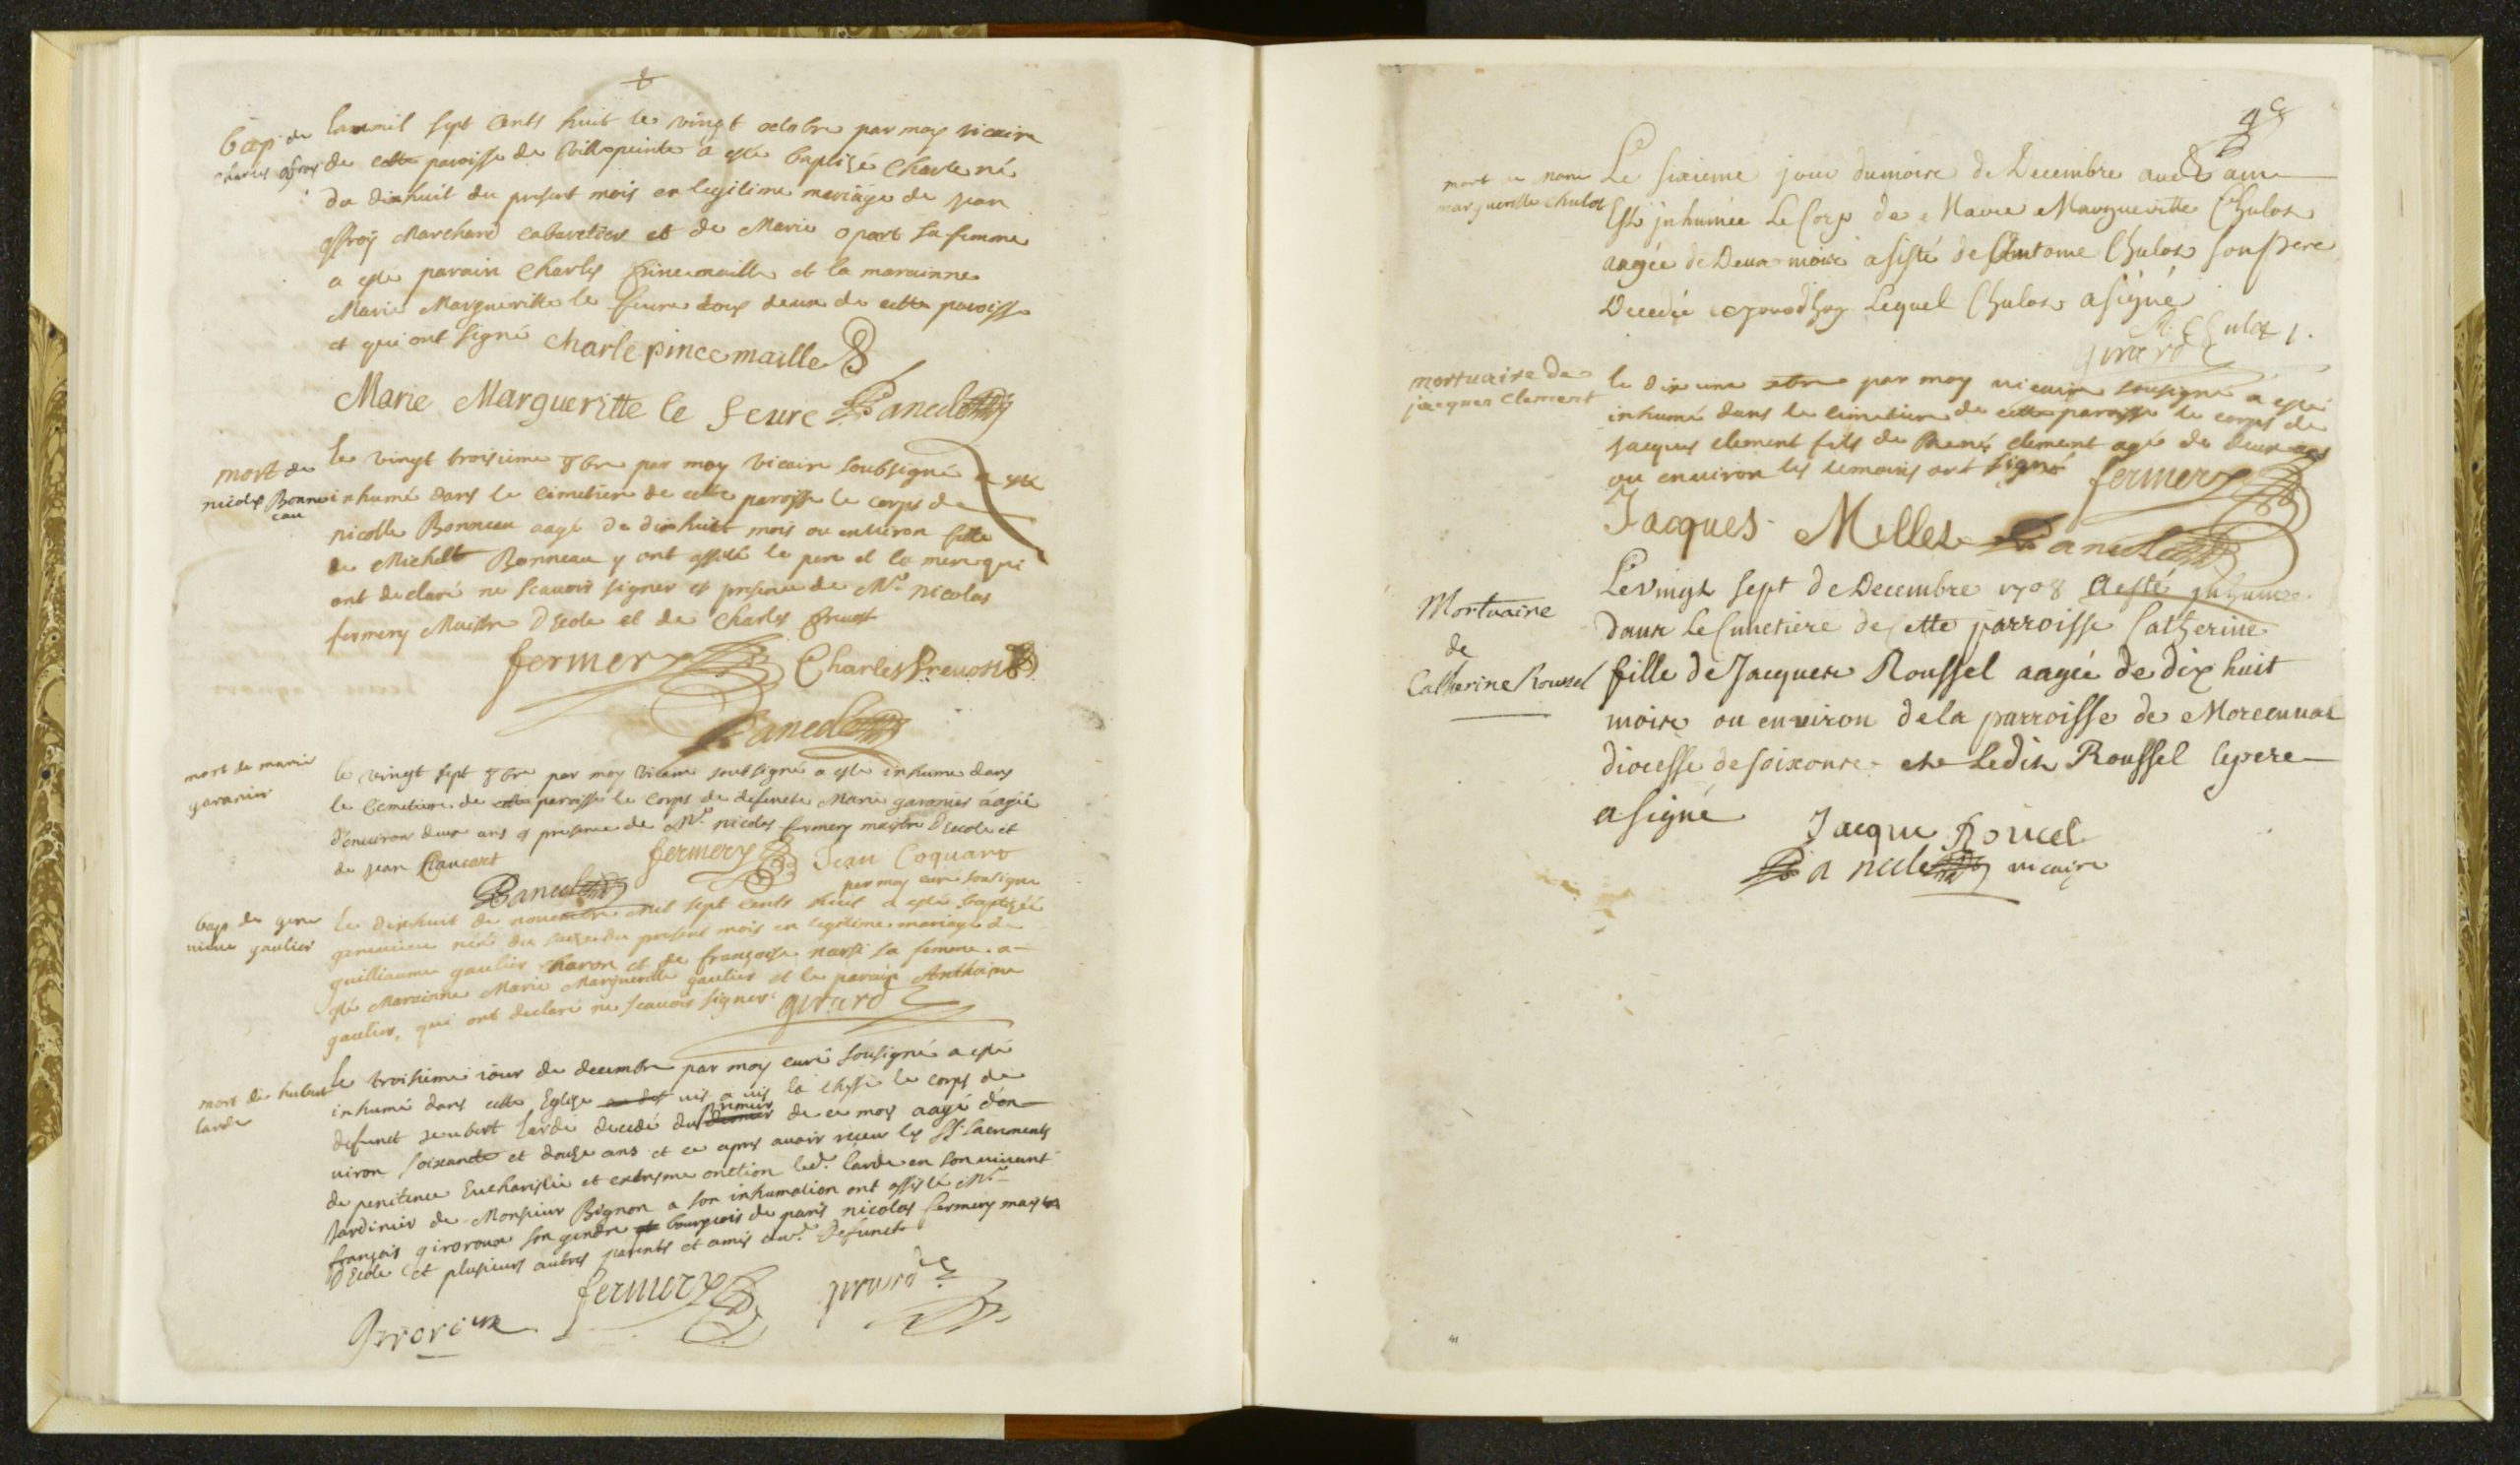 bap de
charles offroy
Lan mil sept cents huit le vingt octobre par moy vicaire
de cette paroisse de Villepeinte a esté baptizé Charle né
du dixhuit du present mois en legitime mariage de jean
offroy Marchand cabaretier et de Marie opart sa femme
a esté parain Charles pincemaille et la marainne
Marie Margueritte le feure tous deux de cette paroisse
et qui ont signé charle pincemaille
Marie Margueritte le feure
mort de
nicolle Bonne
eau
le vingt troisieme 8bre par moy vicaire soubsigné a esté
inhumé dans le cimetiere de cette paroisse le corps de
nicolle Bonneau aagé de dixhuit mois ou environ fille
de Michell Bonneau y ont assisté le pere et la mere qui
ont declaré ne scavoir signer et presence de Mr. nicolas
fermery Maistre D'Ecole et de Charles prevost
fermery Charles Prevost
mort de marie
garanier
le vingt sept 8bre par moy vicaire soubsigné a esté inhume dans
le Cemetiere de cette paroisse le corps de defuncte Marie garanier aagée
d'environ deux ans et presence de Mr. nicolas fermery maistre D'Ecole et
de jean
fermery Jean Coquart
par moy curé sousigné
bap de gene
vieue gaulier
Le dixhuit de novembre mil sept cents huit a esté baptizée
genevieue née du saize du present mois en legitime mariage de
guilliaume gaulier charon et de françoise narsi sa femme. a
esté Marainne Marie Margueritte gaulier et le parain Anthoine
gaulier, qui ont declaré ne scavoir signer. girard
mort de hubert
lardé
Le troisieme iour de decembre par moy curé sousigné a esté
inhumé dans cette Eglise vis a vis la le corps de
defunct heubert lardé decedé du premier de ce mois aagé d'en
viron soixante et douze ans et ce apres avoir receu les Sts sacrements
de penitence Eucharistie et extresme onction led. lardé en son vivant
Jardinier de Monsieur Bignon a son inhumation ont assisté Mr.
françois giroroux son gendre bourgeois de paris nicolas fermery maistre
D'Ecole et plusieurs autres parents et amis dud. Defunct
fermery girard
9e
mort de
margueritte chulot
Le sixieme jour du moire de Decembre
Est jnhumée Le Corp de Marie Margueritte Chulot
aagée de Deux moire asisté de Antoine Chulot son pere
Decedée Lequel Chulot a signé
A Chulot
girard
mortuaire de
jacques clement
le dixieme xbre par moy vicaire sousigné a esté
inhumé dans le cimetiere de cette paroisse le corps de
jacques clement fils de René clement agé de deux ans
ou environ les temoins ont signé fermery
Jacques Mellet
Mortuaire
de
Catherine Roussel
Le vingt sept de Decembre 1708 a esté jnhumée
dans Le Cimetiere de cette parroisse Catherine
fille de Jacques Roussel aagée de dix huit
moire ou environ de la parroisse de Morcenual
diocesse de soixonre et Ledit Roussel le pere
a signé
Jacque Roucel
vicaire